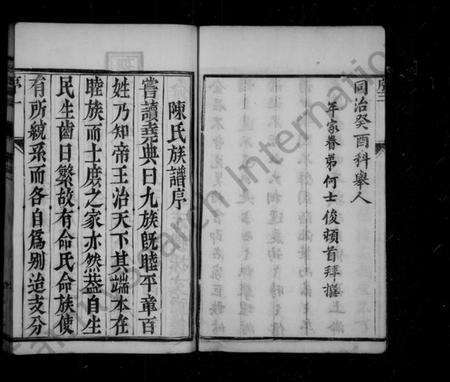 同治癸酉科舉人
年家眷弟何士俊頓首拜撰
陳氏族譜序
嘗讀堯典曰九族既睦平章百
姓乃知帝王治天下其端本在
睦族而士庶之家亦然蓋自生
民生齒日繁故有命氏命族使
有所統系而各自爲别迨支分
序一